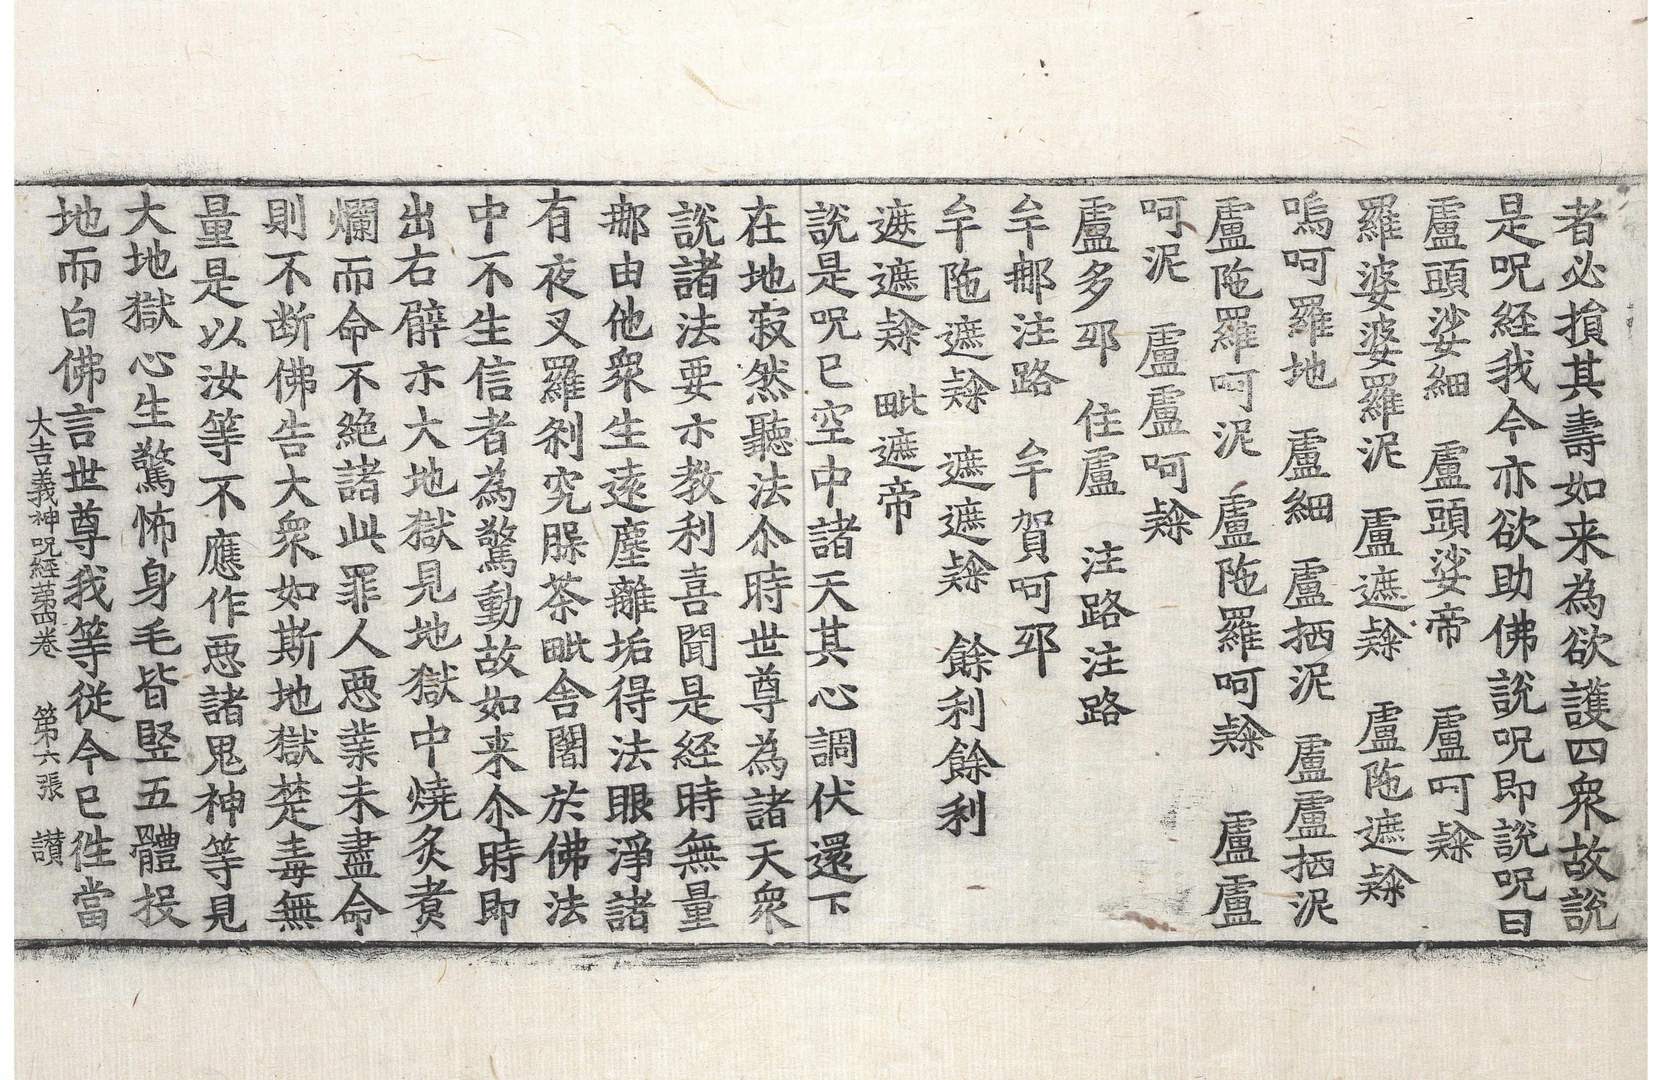 者必損其壽如来為欲護四衆故說
是呪経我今亦欲助佛說呪即說呪曰
盧頭娑細　盧頭娑帝　盧呵䅘
羅婆婆羅泥　盧遮䅘　盧陁遮䅘
嗚呵羅地　盧細　盧栖泥　盧盧栖泥
盧陁羅呵泥　盧陁羅呵䅘　盧盧
呵泥　盧盧呵䅘
盧多耶　住盧　注路注路
牟郍注路　牟賀呵耶
牟陁遮䅘　遮遮䅘　餘利餘利
遮遮䅘　毗遮帝
說是呪已空中諸天其心調伏還下
在地寂然聽法尒時世尊為諸天衆
說諸法要示教利喜聞是経時無量
郍由他衆生遠塵離垢得法眼淨諸
有夜叉羅刹究腬荼毗舍闍於佛法
中不生信者為驚動故如来尒時即
出右臂示大地獄見地獄中燒炙煑
爛而命不絶諸此罪人惡業未盡命
則不断佛告大衆如斯地獄楚毒無
量是以汝等不應作惡諸鬼神等見
大地獄心生驚怖身毛皆竪五體投
地而白佛言世尊我等従今已徃當
大吉義神呪経第四卷　第六張　讃